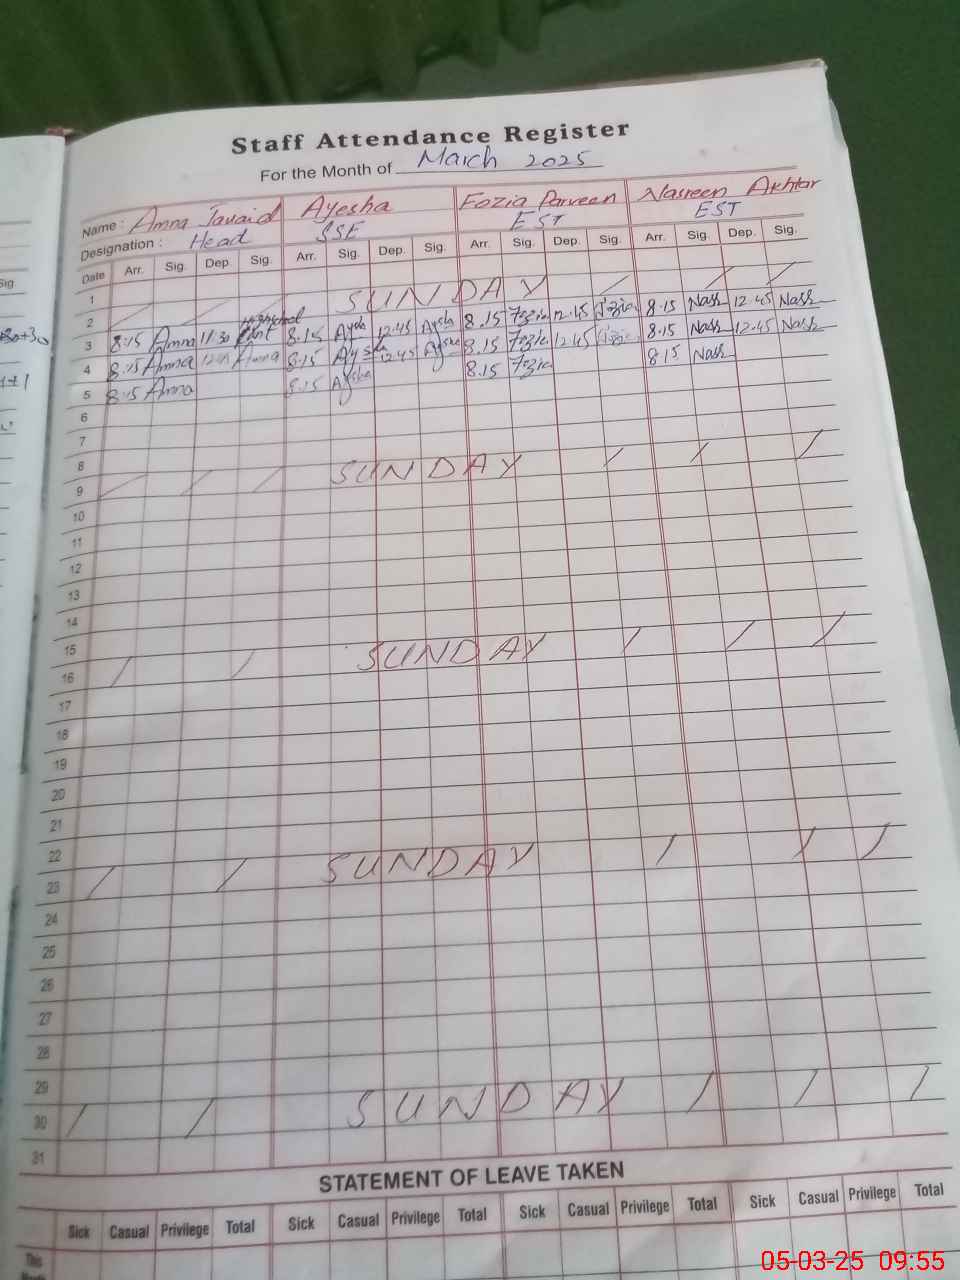 Staff Attendance Register
For the Month of March 2025
Name : Amna Javaid Ayesha Fozia Parveen Nasreen Akhtar
Designation : Head SSE EST EST
Date Arr. Sig. Dep. Sig. Arr. Sig. Dep. Sig. Arr. Sig. Dep. Sig. Arr. Sig. Dep. Sig.
1
2 SUNDAY
3 8:15 Amna 11:30 8.15 Aysha 12.45 Aysha 8.15 Fozia 12.45 Fozia 8.15 Nash 12.45 Nash
4 8:15 Amna Amna 8.15 Aysha 12.45 Aysha 8.15 Fozia 12.45 Fozia 8.15 Nash 12.45 Nash
5 8:15 Amna 8.15 Aysha 8.15 Fozia 8.15 Nash
6
7
8
9 SUNDAY
10
11
12
13
14
15
16 SUNDAY
17
18
19
20
21
22
23 SUNDAY
24
25
26
27
28
29
30 SUNDAY
31
STATEMENT OF LEAVE TAKEN
Sick Casual Privilege Total Sick Casual Privilege Total Sick Casual Privilege Total Sick Casual Privilege Total
This
05-03-25 09:55